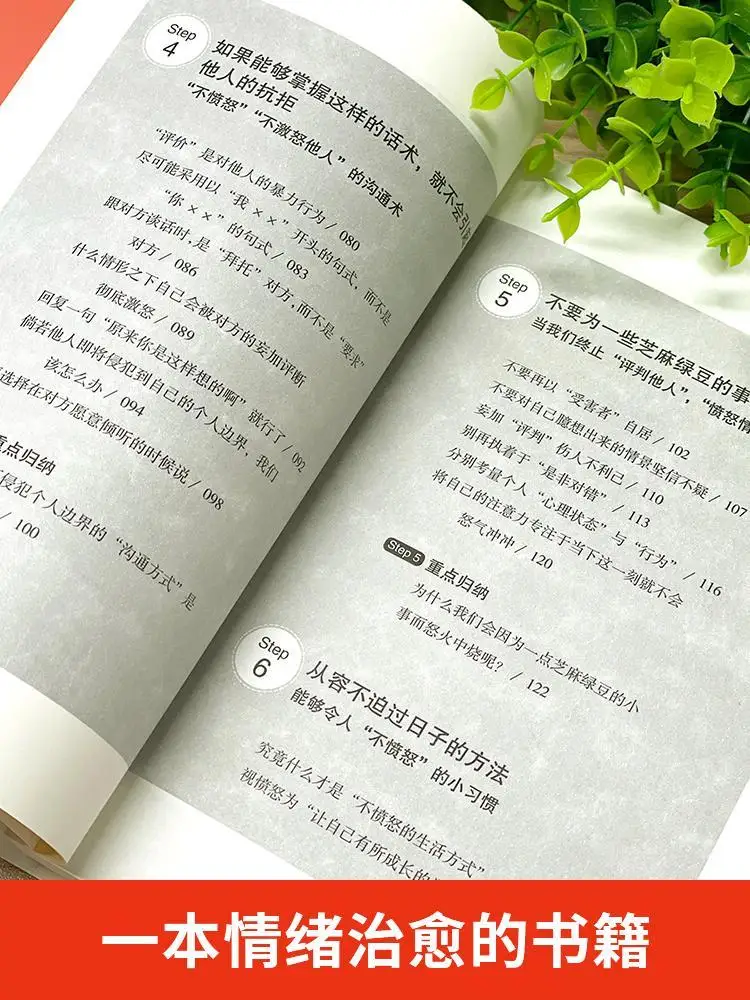 Step
4
如果能够掌握这样的话术，就不会引
他人的抗拒
“不愤怒”“不激怒他人”的沟通术
“评价”是对他人的暴力行为 / 080
尽可能采用以“我 × ×”开头的句式，而不是
“你 × ×”的句式 / 083
跟对方谈话时，是“拜托”对方，而不是“要求”
对方 / 086
什么情形之下自己会被对方的妄加评断
彻底激怒 / 089
回复一句“原来你是这样想的啊”就行了 / 092
倘若他人即将侵犯到自己的个人边界，我们
该怎么办 / 094
选择在对方愿意倾听的时候说 / 098
重点归纳
侵犯个人边界的“沟通方式”是
/ 100
Step
5
不要为一些芝麻绿豆的事
当我们终止“评判他人”，“愤怒情
不要再以“受害者”自居 / 102
不要对自己臆想出来的情景坚信不疑 / 107
妄加“评判”伤人不利己 / 110
别再执着于“是非对错” / 113
分别考量个人“心理状态”与“行为” / 116
将自己的注意力专注于当下这一刻就不会
怒气冲冲 / 120
Step 5 重点归纳
为什么我们会因为一点芝麻绿豆的小
事而怒火中烧呢？ / 122
Step
6
从容不迫过日子的方法
能够令人“不愤怒”的小习惯
究竟什么才是“不愤怒的生活方式”
视愤怒为“让自己有所成长的
一本情绪治愈的书籍